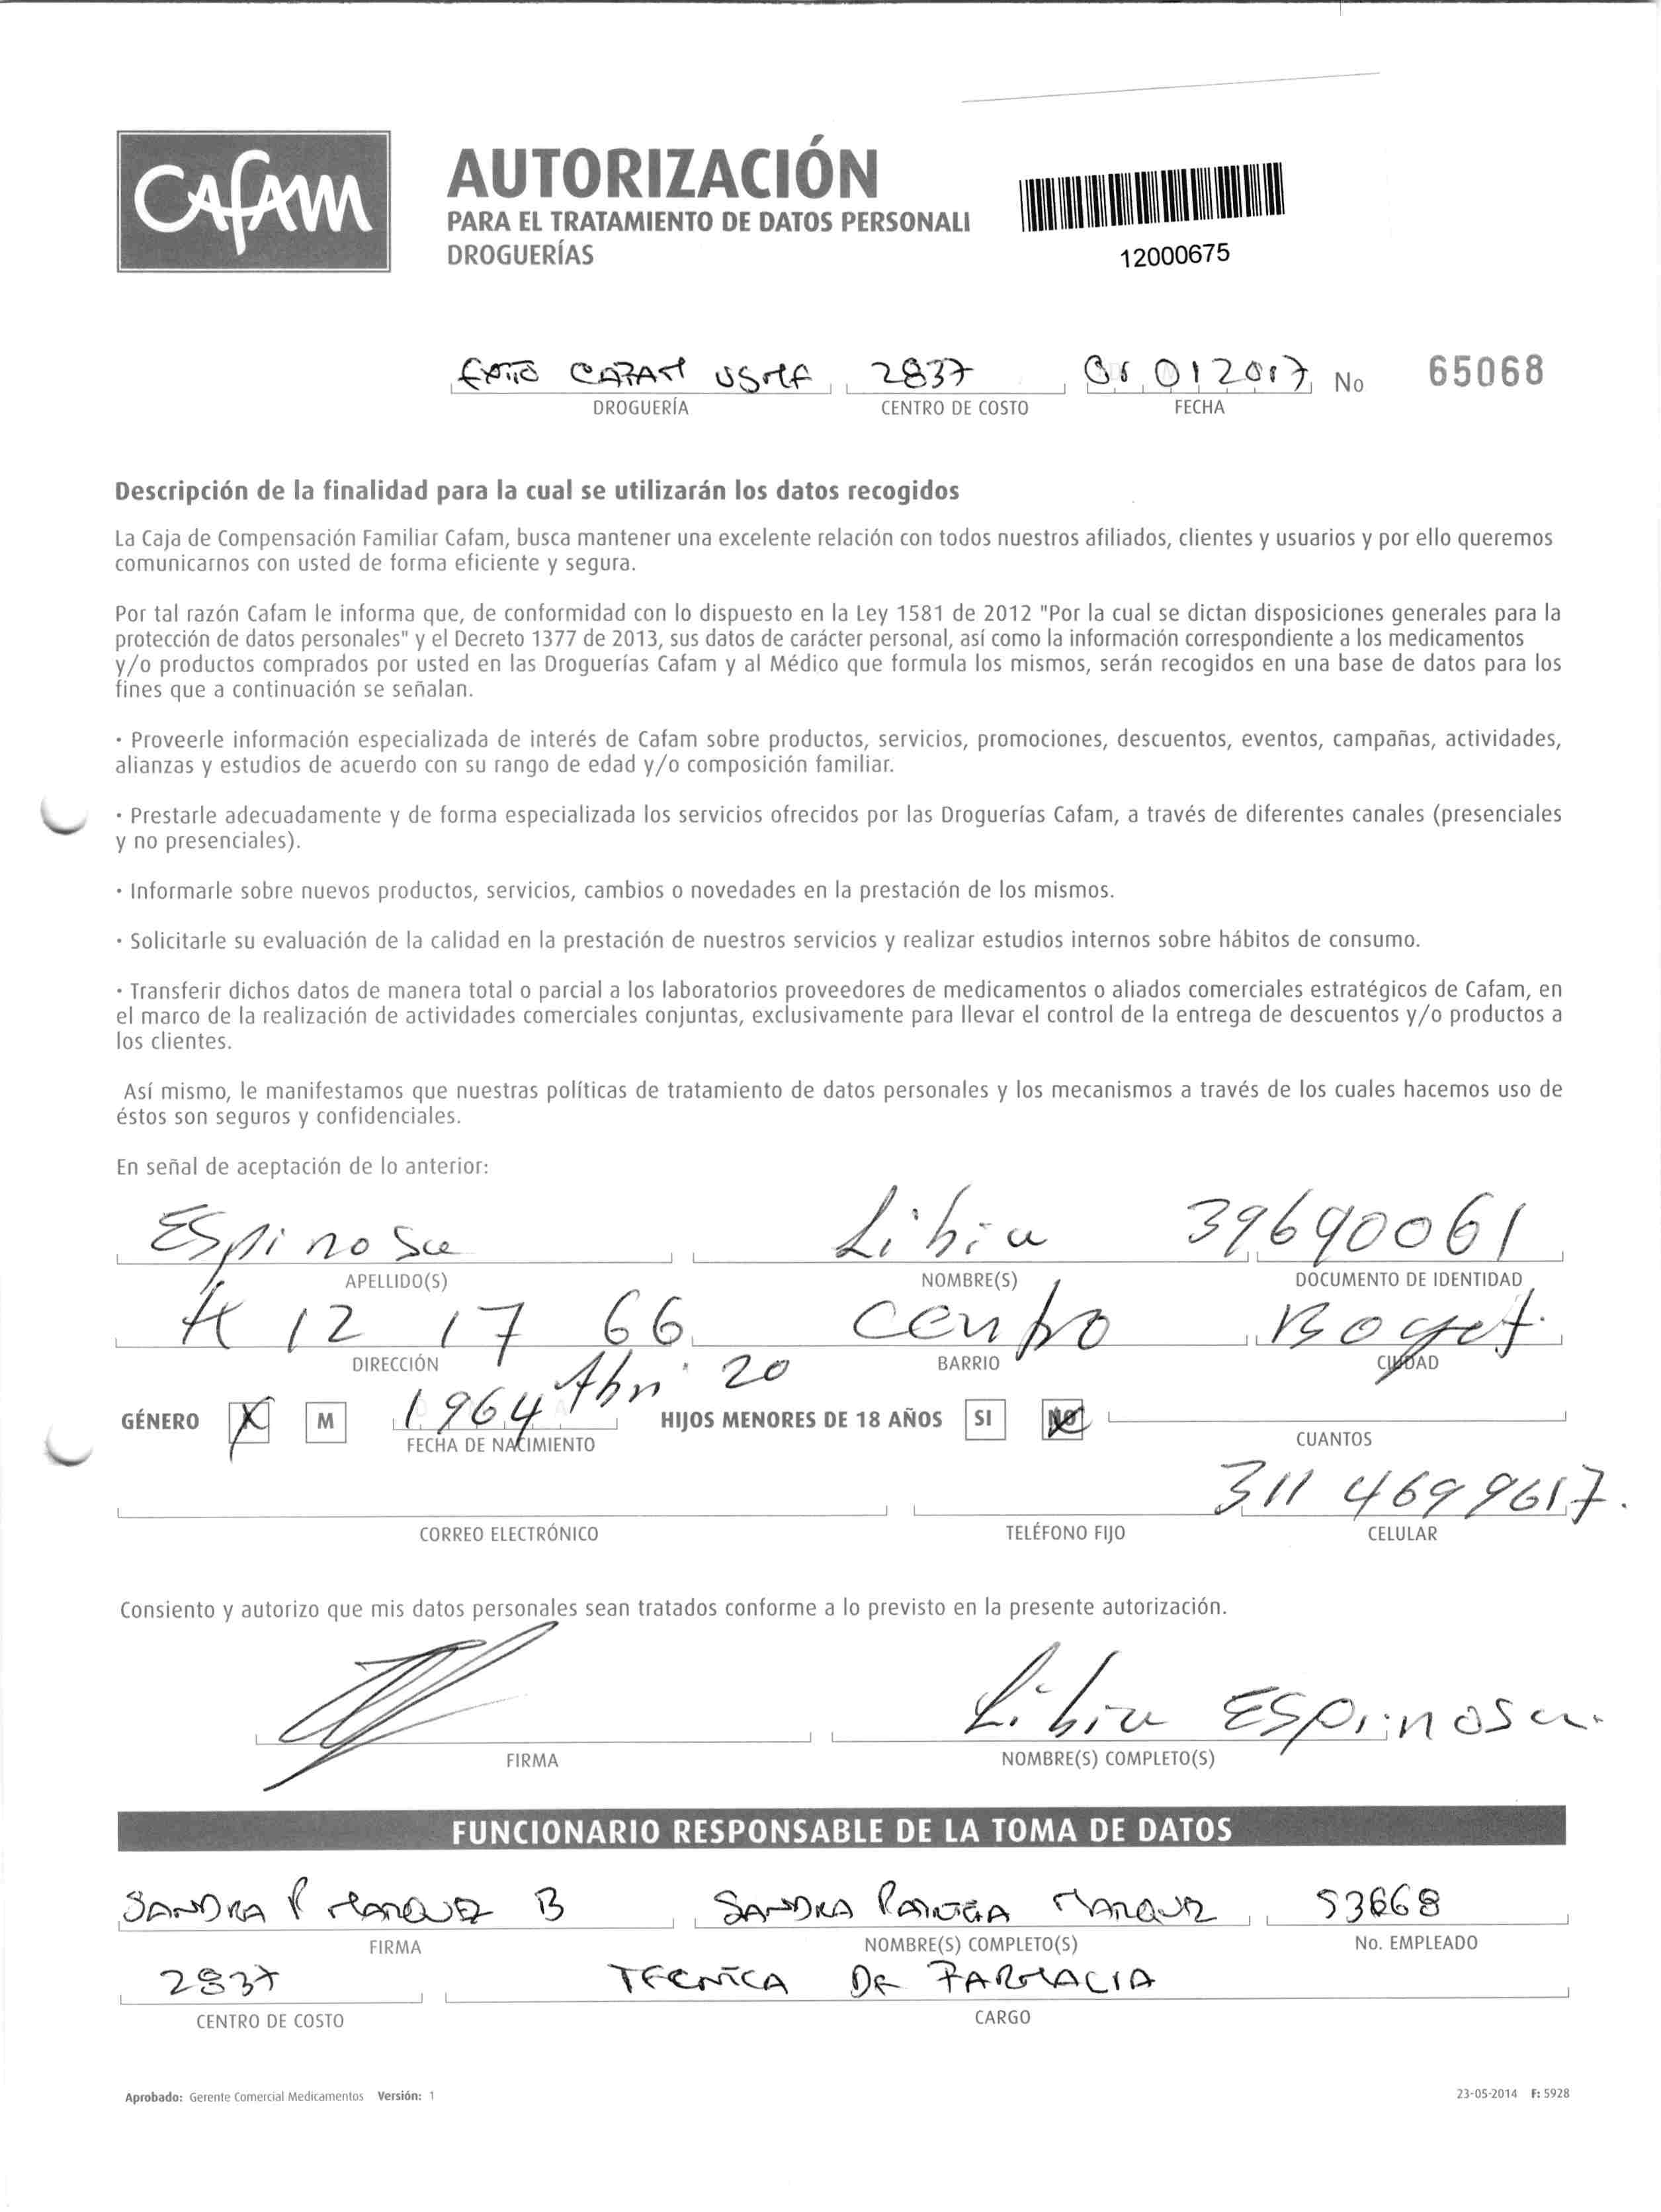 CAFAM
AUTORIZACIÓN
PARA EL TRATAMIENTO DE DATOS PERSONALI
DROGUERÍAS
12000675
CAFAM 2837 012017 No 65068
DROGUERÍA CENTRO DE COSTO FECHA
Descripción de la finalidad para la cual se utilizarán los datos recogidos
La Caja de Compensación Familiar Cafam, busca mantener una excelente relación con todos nuestros afiliados, clientes y usuarios y por ello queremos
comunicarnos con usted de forma eficiente y segura.
Por tal razón Cafam le informa que, de conformidad con lo dispuesto en la Ley 1581 de 2012 "Por la cual se dictan disposiciones generales para la
protección de datos personales" y el Decreto 1377 de 2013, sus datos de carácter personal, así como la información correspondiente a los medicamentos
y/o productos comprados por usted en las Droguerías Cafam y al Médico que formula los mismos, serán recogidos en una base de datos para los
fines que a continuación se señalan.
· Proveerle información especializada de interés de Cafam sobre productos, servicios, promociones, descuentos, eventos, campañas, actividades,
alianzas y estudios de acuerdo con su rango de edad y/o composición familiar.
· Prestarle adecuadamente y de forma especializada los servicios ofrecidos por las Droguerías Cafam, a través de diferentes canales (presenciales
y no presenciales).
· Informarle sobre nuevos productos, servicios, cambios o novedades en la prestación de los mismos.
· Solicitarle su evaluación de la calidad en la prestación de nuestros servicios y realizar estudios internos sobre hábitos de consumo.
· Transferir dichos datos de manera total o parcial a los laboratorios proveedores de medicamentos o aliados comerciales estratégicos de Cafam, en
el marco de la realización de actividades comerciales conjuntas, exclusivamente para llevar el control de la entrega de descuentos y/o productos a
los clientes.
Así mismo, le manifestamos que nuestras políticas de tratamiento de datos personales y los mecanismos a través de los cuales hacemos uso de
éstos son seguros y confidenciales.
En señal de aceptación de lo anterior:
Espinosa Libia 39690061
APELLIDO(S) NOMBRE(S) DOCUMENTO DE IDENTIDAD
12 17 66 Centro Bogot.
DIRECCIÓN BARRIO CIUDAD
GÉNERO M 1964 Abri 20 HIJOS MENORES DE 18 AÑOS SI NO
FECHA DE NACIMIENTO CUANTOS
311 4699617.
CORREO ELECTRÓNICO TELÉFONO FIJO CELULAR
Consiento y autorizo que mis datos personales sean tratados conforme a lo previsto en la presente autorización.
Libia Espinosa.
FIRMA NOMBRE(S) COMPLETO(S)
FUNCIONARIO RESPONSABLE DE LA TOMA DE DATOS
SANDRA P MARQUEZ B SANDRA PATRICIA MARQUEZ 53668
FIRMA NOMBRE(S) COMPLETO(S) No. EMPLEADO
2837 TECNICA DE FARMACIA
CENTRO DE COSTO CARGO
Aprobado: Gerente Comercial Medicamentos Versión: 1 23-05-2014 F: 5928